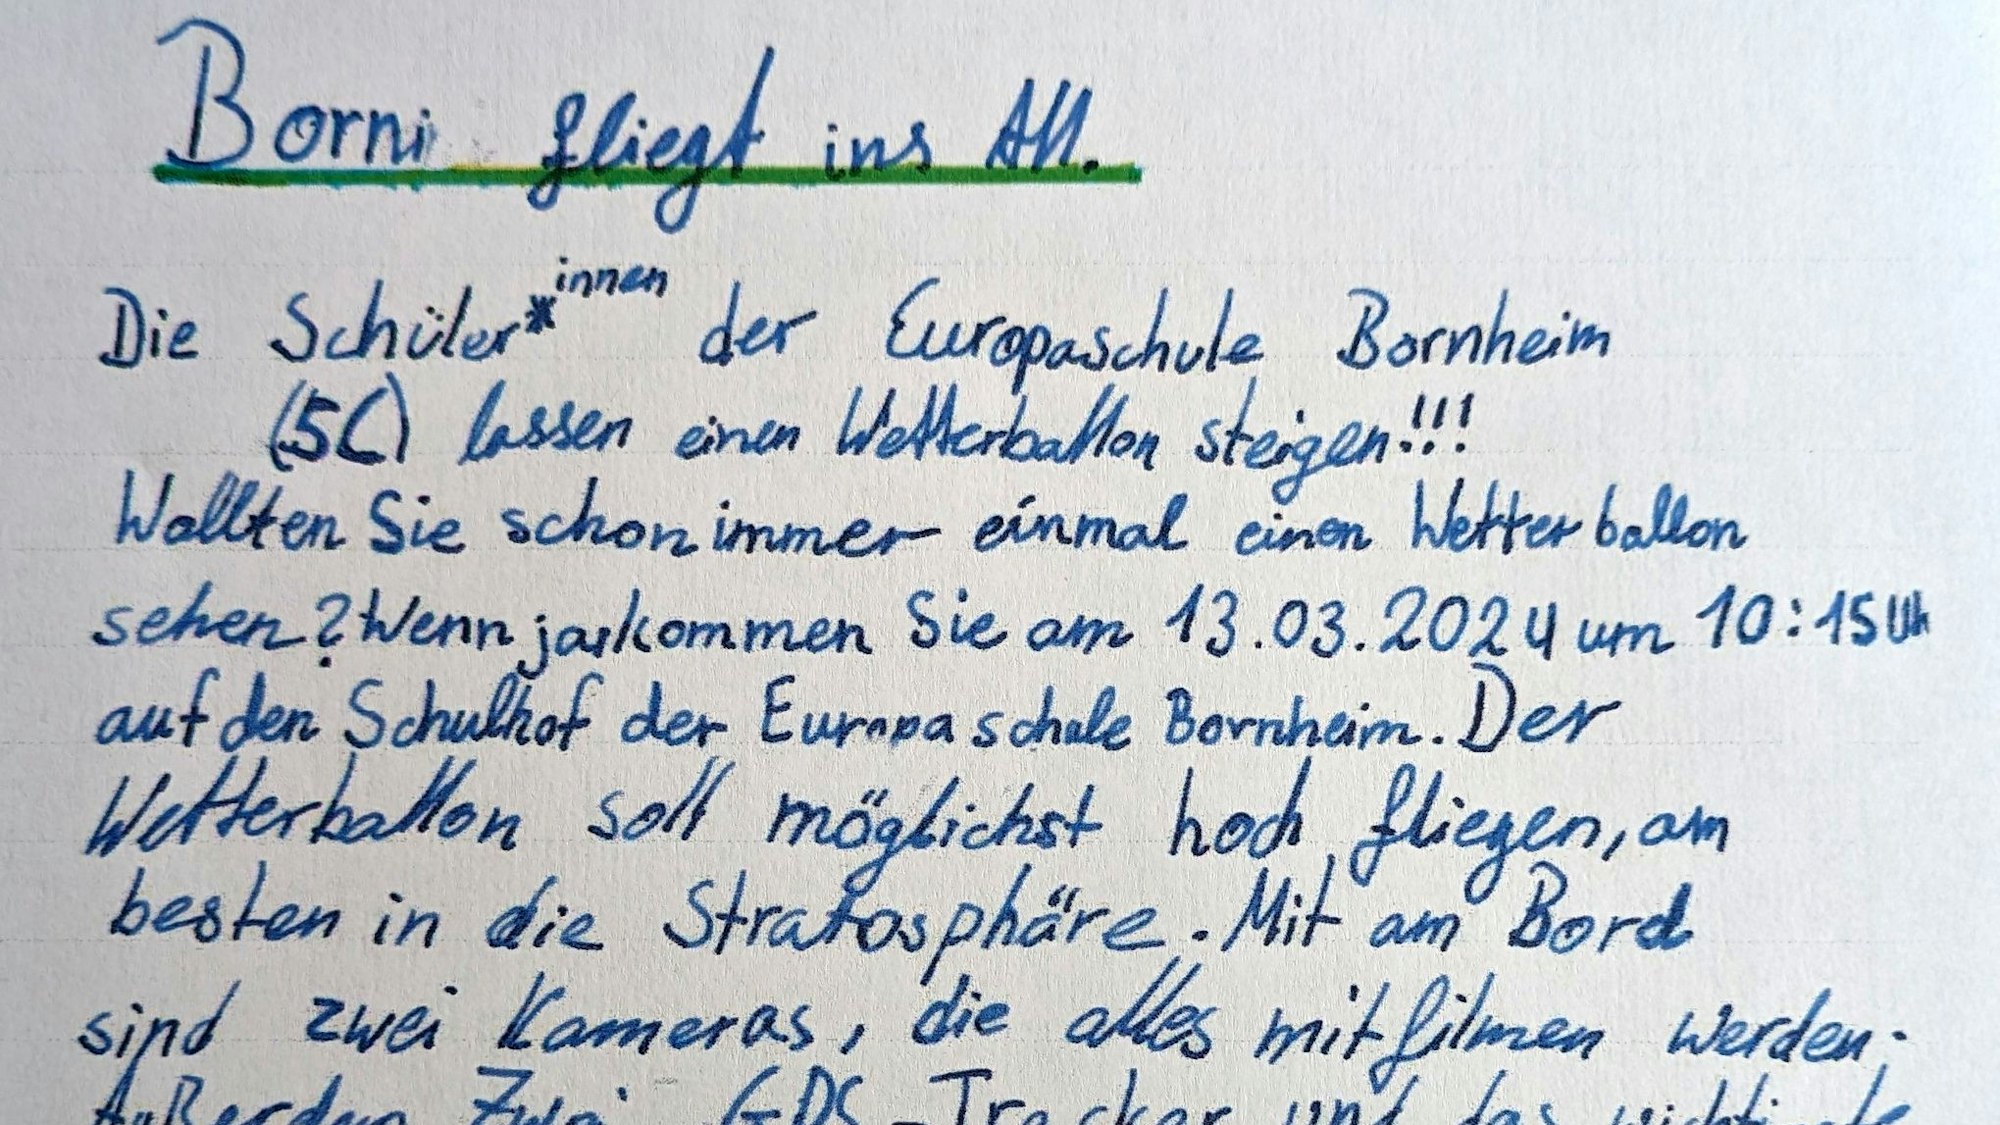 Borni fliegt ins All.
Die Schüler*innen der Europaschule Bornheim
(5C) lassen einen Wetterballon steigen!!!
Wollten Sie schon immer einmal einen Wetterballon
sehen? Wenn ja, kommen Sie am 13.03.2024 um 10:15 Uh
auf den Schulhof der Europaschule Bornheim. Der
Wetterballon soll möglichst hoch fliegen, am
besten in die Stratosphäre. Mit am Bord
sind zwei Kameras, die alles mitfilmen werden.
Außerdem Zwei GPS-Tracker und das wichtigste